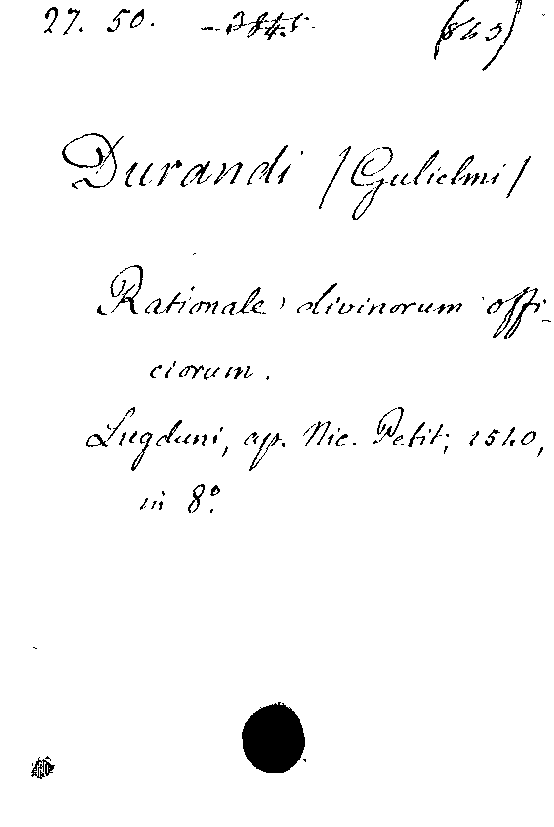 27. 50. - 3845 (843)
Durandi / Gulielmi /
Rationale divinorum offi-
ciorum.
Lugduni, ap. Nic. Petit; 1540,
in 8º.